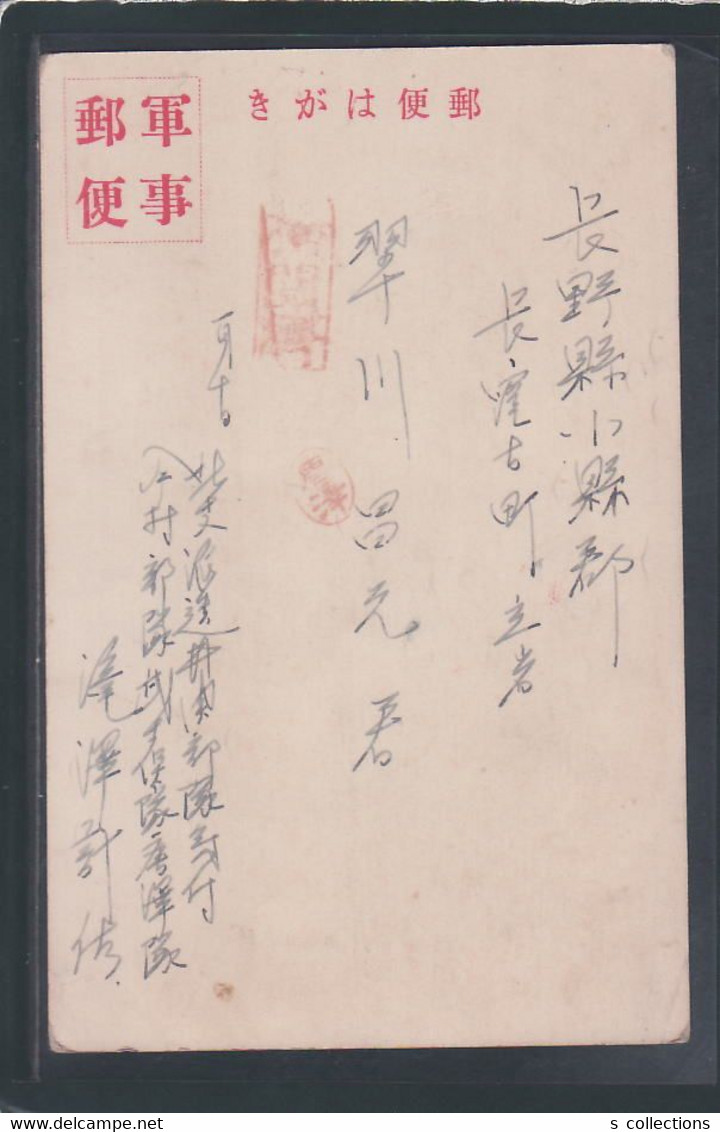 郵便はがき
軍事
郵便
長野縣小縣郡
長窪古町立岩
翠川昌元君
一月十日
北支派遣井関部隊気付
今村部隊
隊唐澤隊
滝澤計
s collections